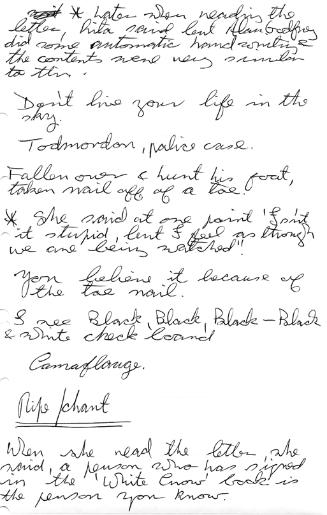 * Later when reading the
letter, Rita said that Alan Godfrey
did some automatic handwriting
the contents were very similar
to this.
Don't live your life in the
sky.
Todmordon, police case.
Fallen over & hurt his foot,
taken nail off of a toe.
* She said at one point 'Isn't
it stupid, but I feel as though
we are being watched'!
You believe it because of
the toe nail.
I see Black, Black, Black – Black
& white check board
Camaflouge.
Ripe/chant
When she read the letter, she
said, a person who has signed
in the 'White Crow' book is
the person you know.